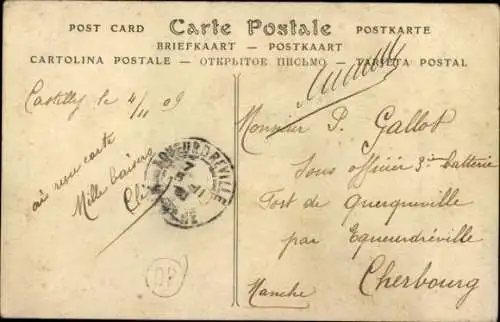 POST CARD Carte Postale POSTKARTE
BRIEFKAART — POSTKAART
CARTOLINA POSTALE — ОТКРЫТОЕ ПИСЬМО — TARJETA POSTAL
Castilly le 4/11 09
ai reçu carte
Mille baisers
EQUEURDREVILLE
Monsieur P. Gallot
Sous officier 3ième batterie
Fort de Querqueville
par Equeurdréville
Cherbourg
Manche